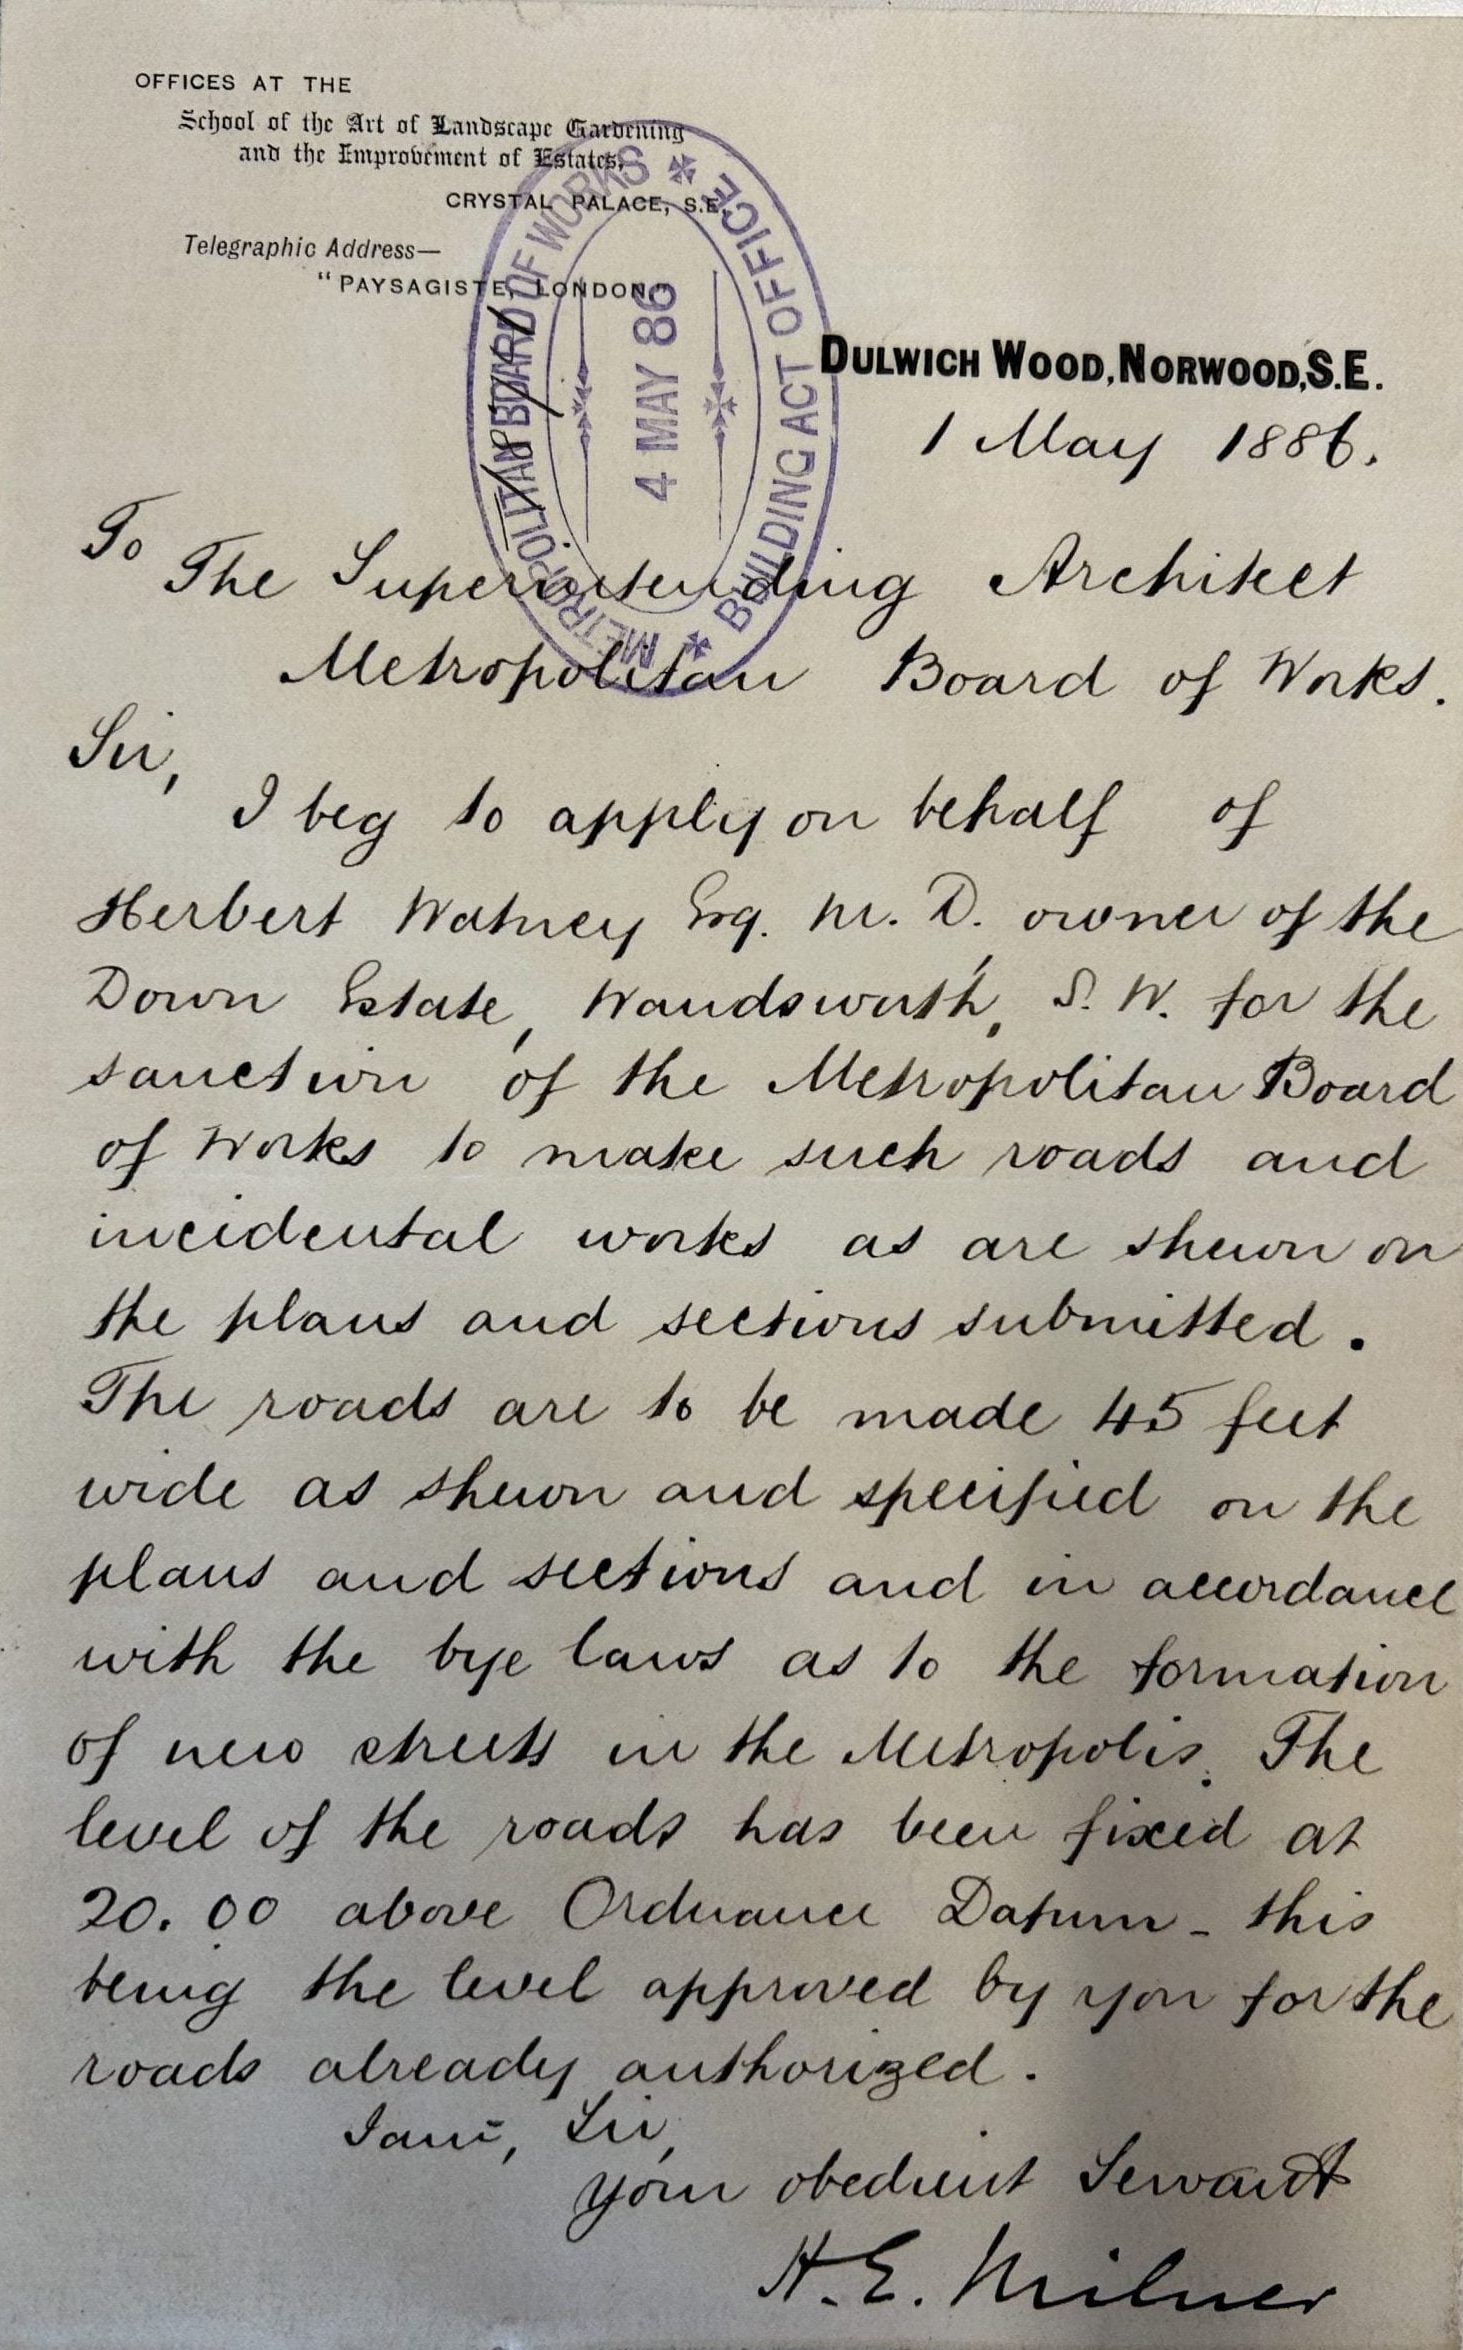 OFFICES AT THE
School of the Art of Landscape Gardening
and the Improvement of Estates,
CRYSTAL PALACE, S.E.
Telegraphic Address—
"PAYSAGISTE, LONDON."
METROPOLITAN BOARD OF WORKS
BUILDING ACT OFFICE
4 MAY 86
DULWICH WOOD, NORWOOD, S.E.
1 May 1886.
To
The Superintending Architect
Metropolitan Board of Works.
Sir,
I beg to apply on behalf of
Herbert Watney Esq. M. D. owner of the
Down Estate, Wandsworth, S. W. for the
sanction of the Metropolitan Board
of Works to make such roads and
incidental works as are shewn on
the plans and sections submitted.
The roads are to be made 45 feet
wide as shewn and specified on the
plans and sections and in accordance
with the bye laws as to the formation
of new streets in the Metropolis. The
level of the roads has been fixed at
20.00 above Ordnance Datum - this
being the level approved by you for the
roads already authorized.
I am, Sir,
Your obedient Servant
H. E. Milner